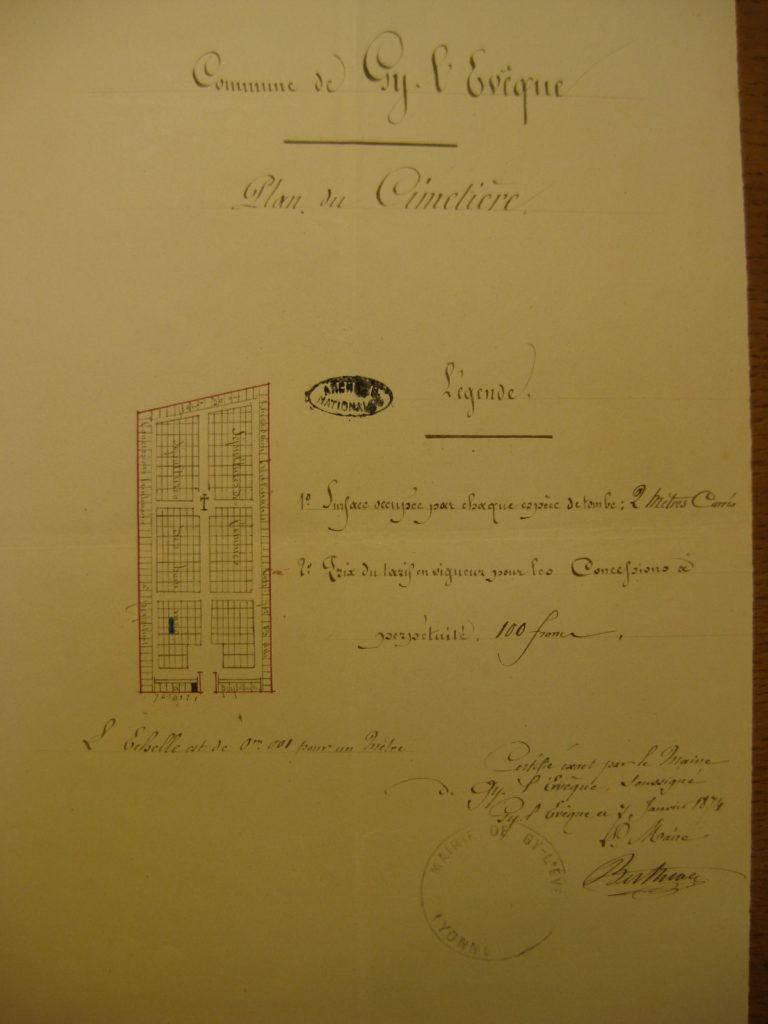 Commune de Gy-l'Evêque
Plan du Cimetière.
ARCHIVES
NATIONALES
Légende.
1º Surface occupée par chaque espèce de tombe: 2 Mètres Carrés
2º Prix du tarif en vigueur pour les Concessions à
perpétuité. 100 francs.
L'Echelle est de 0m.001 pour un Mètre
Certifié exact par le Maire
de Gy-l'Evêque, soussigné
Gy-l'Evêque le 7 Janvier 1874
Le Maire
MAIRIE DE GY-L'ÉVÊ
(YONNE